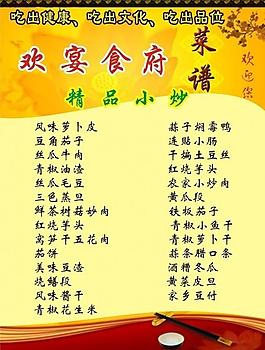 吃出健康、吃出文化、吃出品位
欢宴食府
菜谱
欢迎您
精品小炒
风味萝卜皮
豆角茄子
丝瓜牛肉
青椒油渣
丝瓜毛豆
三色蒸旦
鲜茶树菇炒肉
红烧芋头
窝笋干五花肉
茄饼
美味豆渣
烧鳝段
风味酱干
青椒花生米
蒜子焖霉鸭
连贴小肠
干煸土豆丝
红烧芋头
农家小炒肉
黄瓜段
铁板茄子
青椒小鱼干
青椒萝卜干
蒜条腊口条
酒糟冬瓜
黄菜皮旦
家乡豆付